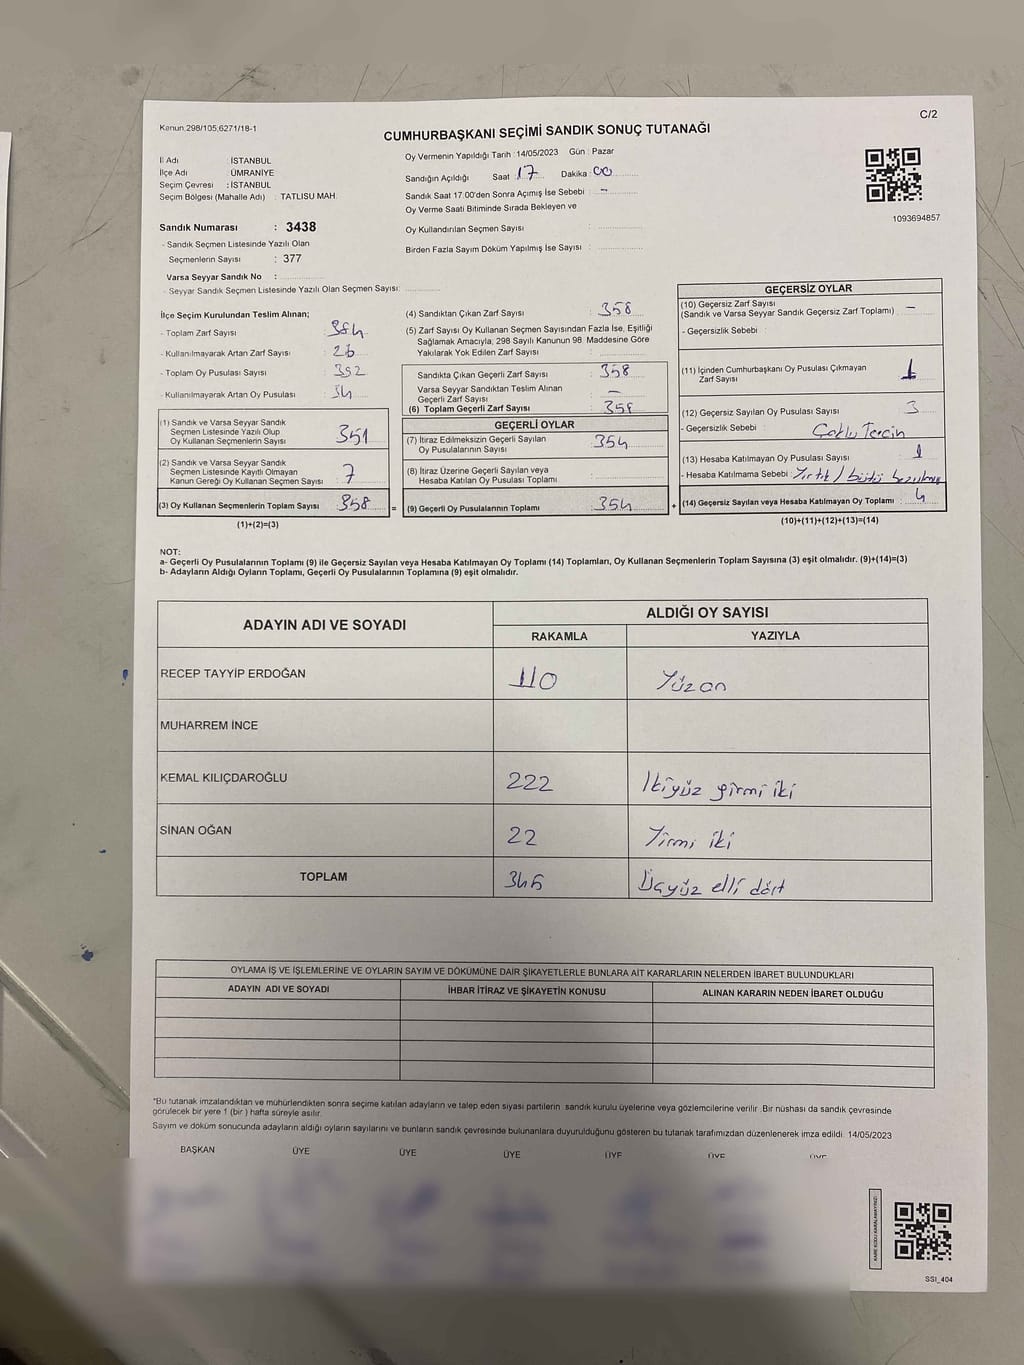 Kanun,298/105,6271/18-1
C/2
CUMHURBAŞKANI SEÇİMİ SANDIK SONUÇ TUTANAĞI
İl Adı : İSTANBUL
İlçe Adı : ÜMRANİYE
Seçim Çevresi : İSTANBUL
Seçim Bölgesi (Mahalle Adı) : TATLISU MAH.
Sandık Numarası : 3438
- Sandık Seçmen Listesinde Yazılı Olan
Seçmenlerin Sayısı : 377
Varsa Seyyar Sandık No :
- Seyyar Sandık Seçmen Listesinde Yazılı Olan Seçmen Sayısı:
Oy Vermenin Yapıldığı Tarih : 14/05/2023 Gün : Pazar
Sandığın Açıldığı Saat : 17 Dakika : 00
Sandık Saat 17.00'den Sonra Açılmış İse Sebebi : -
Oy Verme Saati Bitiminde Sırada Bekleyen ve
Oy Kullandırılan Seçmen Sayısı :
Birden Fazla Sayım Döküm Yapılmış İse Sayısı :
1093694857
İlçe Seçim Kurulundan Teslim Alınan;
- Toplam Zarf Sayısı : 384
- Kullanılmayarak Artan Zarf Sayısı : 26
- Toplam Oy Pusulası Sayısı : 392
- Kullanılmayarak Artan Oy Pusulası : 34
(1) Sandık ve Varsa Seyyar Sandık
Seçmen Listesinde Yazılı Olup
Oy Kullanan Seçmenlerin Sayısı : 351
(2) Sandık ve Varsa Seyyar Sandık
Seçmen Listesinde Kayıtlı Olmayan
Kanun Gereği Oy Kullanan Seçmen Sayısı : 7
(3) Oy Kullanan Seçmenlerin Toplam Sayısı : 358
(1)+(2)=(3)
=
(4) Sandıktan Çıkan Zarf Sayısı : 358
(5) Zarf Sayısı Oy Kullanan Seçmen Sayısından Fazla İse, Eşitliği
Sağlamak Amacıyla, 298 Sayılı Kanunun 98. Maddesine Göre
Yakılarak Yok Edilen Zarf Sayısı :
Sandıkta Çıkan Geçerli Zarf Sayısı : 358
Varsa Seyyar Sandıktan Teslim Alınan
Geçerli Zarf Sayısı : -
(6) Toplam Geçerli Zarf Sayısı : 358
GEÇERLİ OYLAR
(7) İtiraz Edilmeksizin Geçerli Sayılan
Oy Pusulalarının Sayısı : 354
(8) İtiraz Üzerine Geçerli Sayılan veya
Hesaba Katılan Oy Pusulası Toplamı :
(9) Geçerli Oy Pusulalarının Toplamı : 354
+
GEÇERSİZ OYLAR
(10) Geçersiz Zarf Sayısı
(Sandık ve Varsa Seyyar Sandık Geçersiz Zarf Toplamı) : -
- Geçersizlik Sebebi :
(11) İçinden Cumhurbaşkanı Oy Pusulası Çıkmayan
Zarf Sayısı :
(12) Geçersiz Sayılan Oy Pusulası Sayısı : 3
- Geçersizlik Sebebi : Çoklu Tercih
(13) Hesaba Katılmayan Oy Pusulası Sayısı : 1
- Hesaba Katılmama Sebebi : Yırtık /
(14) Geçersiz Sayılan veya Hesaba Katılmayan Oy Toplamı : 4
(10)+(11)+(12)+(13)=(14)
NOT:
a- Geçerli Oy Pusulalarının Toplamı (9) ile Geçersiz Sayılan veya Hesaba Katılmayan Oy Toplamı (14) Toplamları, Oy Kullanan Seçmenlerin Toplam Sayısına (3) eşit olmalıdır. (9)+(14)=(3)
b- Adayların Aldığı Oyların Toplamı, Geçerli Oy Pusulalarının Toplamına (9) eşit olmalıdır.
ADAYIN ADI VE SOYADI
ALDIĞI OY SAYISI
RAKAMLA YAZIYLA
RECEP TAYYİP ERDOĞAN 110 Yüzon
MUHARREM İNCE
KEMAL KILIÇDAROĞLU 222 İkiyüz yirmi iki
SİNAN OĞAN 22 Yirmi iki
TOPLAM Üçyüz elli dört
OYLAMA İŞ VE İŞLEMLERİNE VE OYLARIN SAYIM VE DÖKÜMÜNE DAİR ŞİKAYETLERLE BUNLARA AİT KARARLARIN NELERDEN İBARET BULUNDUKLARI
ADAYIN ADI VE SOYADI İHBAR İTİRAZ VE ŞİKAYETİN KONUSU ALINAN KARARIN NEDEN İBARET OLDUĞU
*Bu tutanak imzalandıktan ve mühürlendikten sonra seçime katılan adayların ve talep eden siyasi partilerin sandık kurulu üyelerine veya gözlemcilerine verilir. Bir nüshası da sandık çevresinde
görülecek bir yere 1 (bir ) hafta süreyle asılır.
Sayım ve döküm sonucunda adayların aldığı oyların sayılarını ve bunların sandık çevresinde bulunanlara duyurulduğunu gösteren bu tutanak tarafımızdan düzenlenerek imza edildi. 14/05/2023
BAŞKAN ÜYE ÜYE ÜYE ÜYE ÜYE ÜYE
KARE KODU KARALAMAYINIZ!
SSI_404